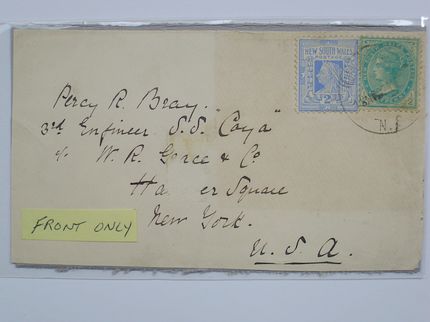 NEW SOUTH WALES
POSTAGE
Percy R. Bray.
3rd Engineer S.S. "Coya"
c/o W. R. Grace & Co
Ha er Square
New York.
U. S. A.
N.S
FRONT ONLY